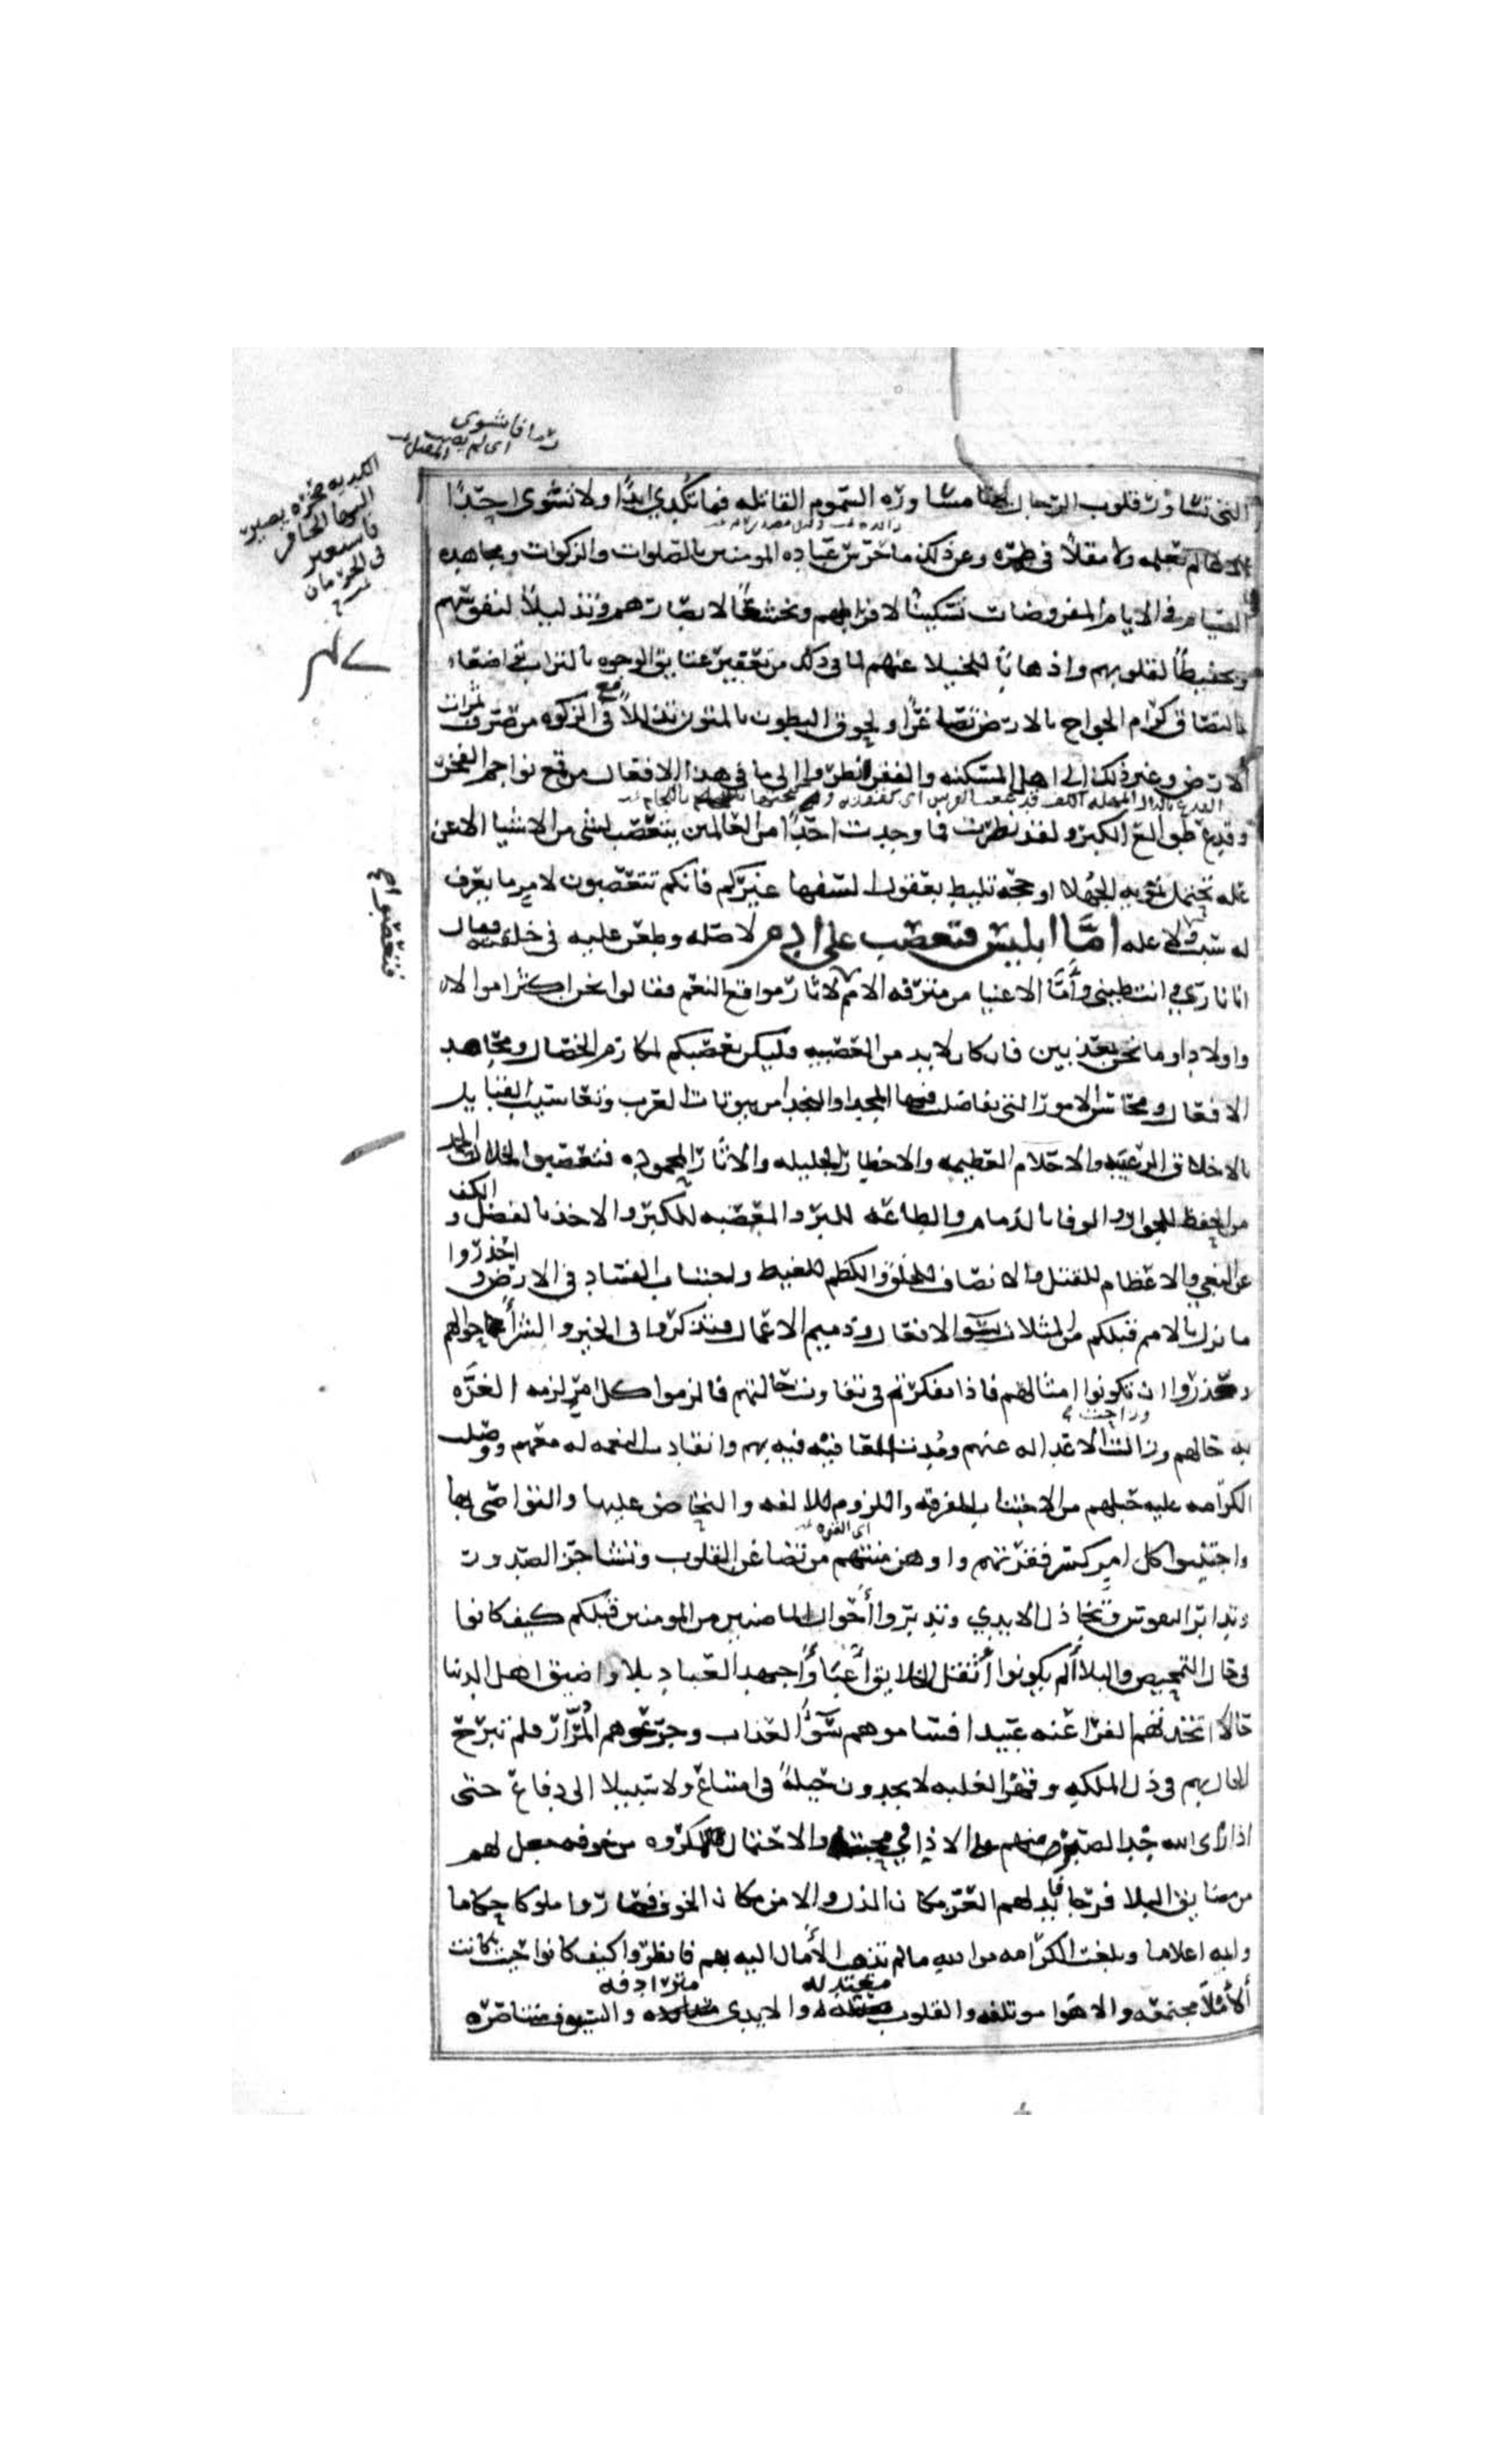 رمافاشوى
اى لم يصب المقتل
الكديه صخره يصير
اليها الحافر
فاستعير
فى الحرمان
التى تساور قلوب الرجال مساوره السموم القاتله فما تكدي ابدًا ولا تشوى احدًا
لا عالما لعلمه ولا مقلًا فى طمره وعن ذلك ما حرس عباده المومنين بالصلوات والزكوات ومجاهده
الصيام فى الايام المفروضات تسكينًا لاطرافهم وتخشيعًا لابصارهم وتذليلًا لنفوسهم
وتخفيضًا لقلوبهم واذهابًا للخيلا عنهم لما فى ذلك من تعفير عتايق الوجوه بالتراب تواضعًا
بالتصاق كرام الجوارح بالارض تصاغرًا ولحوق البطون بالمتون تذللًا مع ما فى الزكوه من صرف ثمرات
الارض وغير ذلك الى اهل المسكنه والفقر انظروا الى ما فى هذا الافعال من قمع نواجم الفخر
وقدع طوالع الكبر ولقد نظرت فما وجدت احدًا من العالمين يتعصب لشى من الاشيا الا عن
عله تحتمل تمويه الجهلا او حجه تليط بعقول السفها غيركم فانكم تتعصبون لامر ما يعرف
فتعصبوا
له سبب ولا عله امَّا ابليس فتعصب على ادم لاصله وطعن عليه فى خلقته فقال
انا نارى وانت طينى وأمَّا الاغنيا من مترفه الامم لاثار مواقع النعم فقالوا نحن اكثر اموالا
واولادا وما نحن بمعذبين فان كان لابد من العصبيه فليكن تعصبكم لمكارم الخصال ومحامد
الافعال ومحاسن الامور التى تفاضلت فيها المجدا والنجدا من بيوتات العرب ويعاسيب القبايل
بالاخلاق الرغيبه والاحلام العظيمه والاخطار الجليله والاثار المحموده فتعصبوا لخلال الحمد
من الحفظ للجوار والوفا بالذمام والطاعه للبر والمعصيه للكبر والاخذ بالفضل و الكف
عن البغي والاعظام للقتل والانصاف للخلق والكظم للغيظ واجتناب الفساد فى الارض و احذروا
ما نزل بالامم قبلكم من المثلات بسو الافعال وذميم الاعمال فتذكروا فى الخير والشر أحوالهم
واحذروا ان تكونوا امثالهم فاذا تفكرتم فى تفاوت حالتهم فالزموا كل امر لزمت العزَّه
به حالهم وزاحت الاعدا له عنهم ومُدت العافيه فيه بهم وانقادت النعمه له معهم ووصلت
الكرامه عليه حبلهم من الاجتناب للفرقه واللزوم للالفه والتحاض عليها والتواصى بها
اى القوه
واجتنبوا كل امر كسر فقرتهم واوهن منتهم من تضاغن القلوب وتشاحن الصدور
وتدابر النفوس وتخاذل الايدي وتدبروا أحوال الماضين من المومنين قبلكم كيف كانوا
فى حال التمحيص والبلا ألم يكونوا أثقل الخلايق أعبًا وأجهد العباد بلا واضيق اهل الدنيا
حالًا اتخذتهم الفراعنه عبيدا فساموهم سُوَ العذاب وجرعوهم المُرَار فلم تبرح
الحال بهم فى ذل الملكه وقهر الغلبه لا يجدون حيلةً فى امتناع ولا سبيلا الى دفاع حتى
اذا راى الله جد الصبر منهم على الاذى في محبته والاحتمال للمكروه من خوفه جعل لهم
من مضايق البلا فرجا فابدلهم العز مكان الذل والامن مكان الخوف فصاروا ملوكا حكاما
وايمه اعلاما وبلغت الكرامه من الله ما لم تذهب الأمال اليه بهم فانظروا كيف كانوا حيث كانت
معتدله مترادفه
ألأملا مجتمعه والاهوا موتلفه والقلوب والايدى والسيوف متناصره